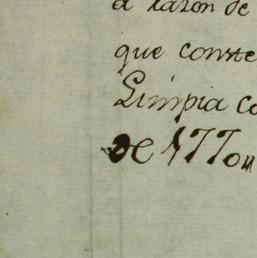 a razon de
que conste
Limpia co
de 1770